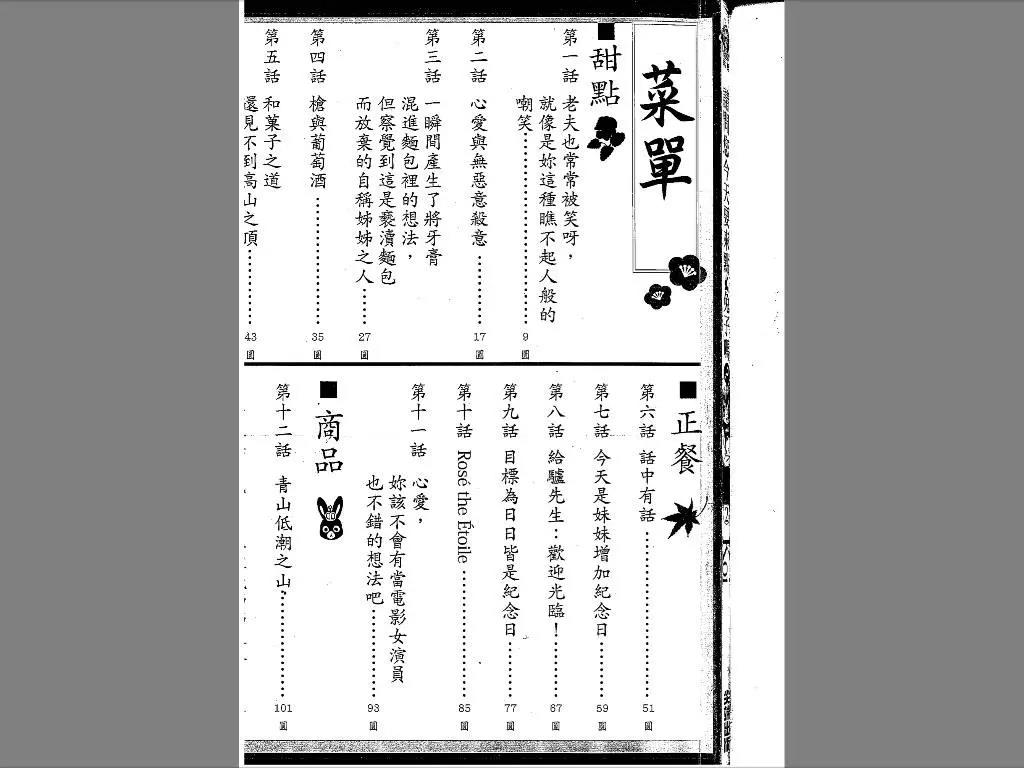 菜單
■甜點
第一話 老夫也常常被笑呀，
就像是妳這種瞧不起人般的
嘲笑……………………9圓
第二話 心愛與無惡意殺意……………17圓
第三話 一瞬間產生了將牙膏
混進麵包裡的想法，
但察覺到這是褻瀆麵包
而放棄的自稱姊姊之人……27圓
第四話 槍與葡萄酒……………………35圓
第五話 和菓子之道
還見不到高山之頂……………43圓
■正餐
第六話 話中有話……………………51圓
第七話 今天是妹妹增加紀念日………59圓
第八話 給驢先生：歡迎光臨！………67圓
第九話 目標為日日皆是紀念日………77圓
第十話 Rosé the Étoile………………85圓
第十一話 心愛，
妳該不會有當電影女演員
也不錯的想法吧……………93圓
■商品
第十二話 青山低潮之山……………101圓